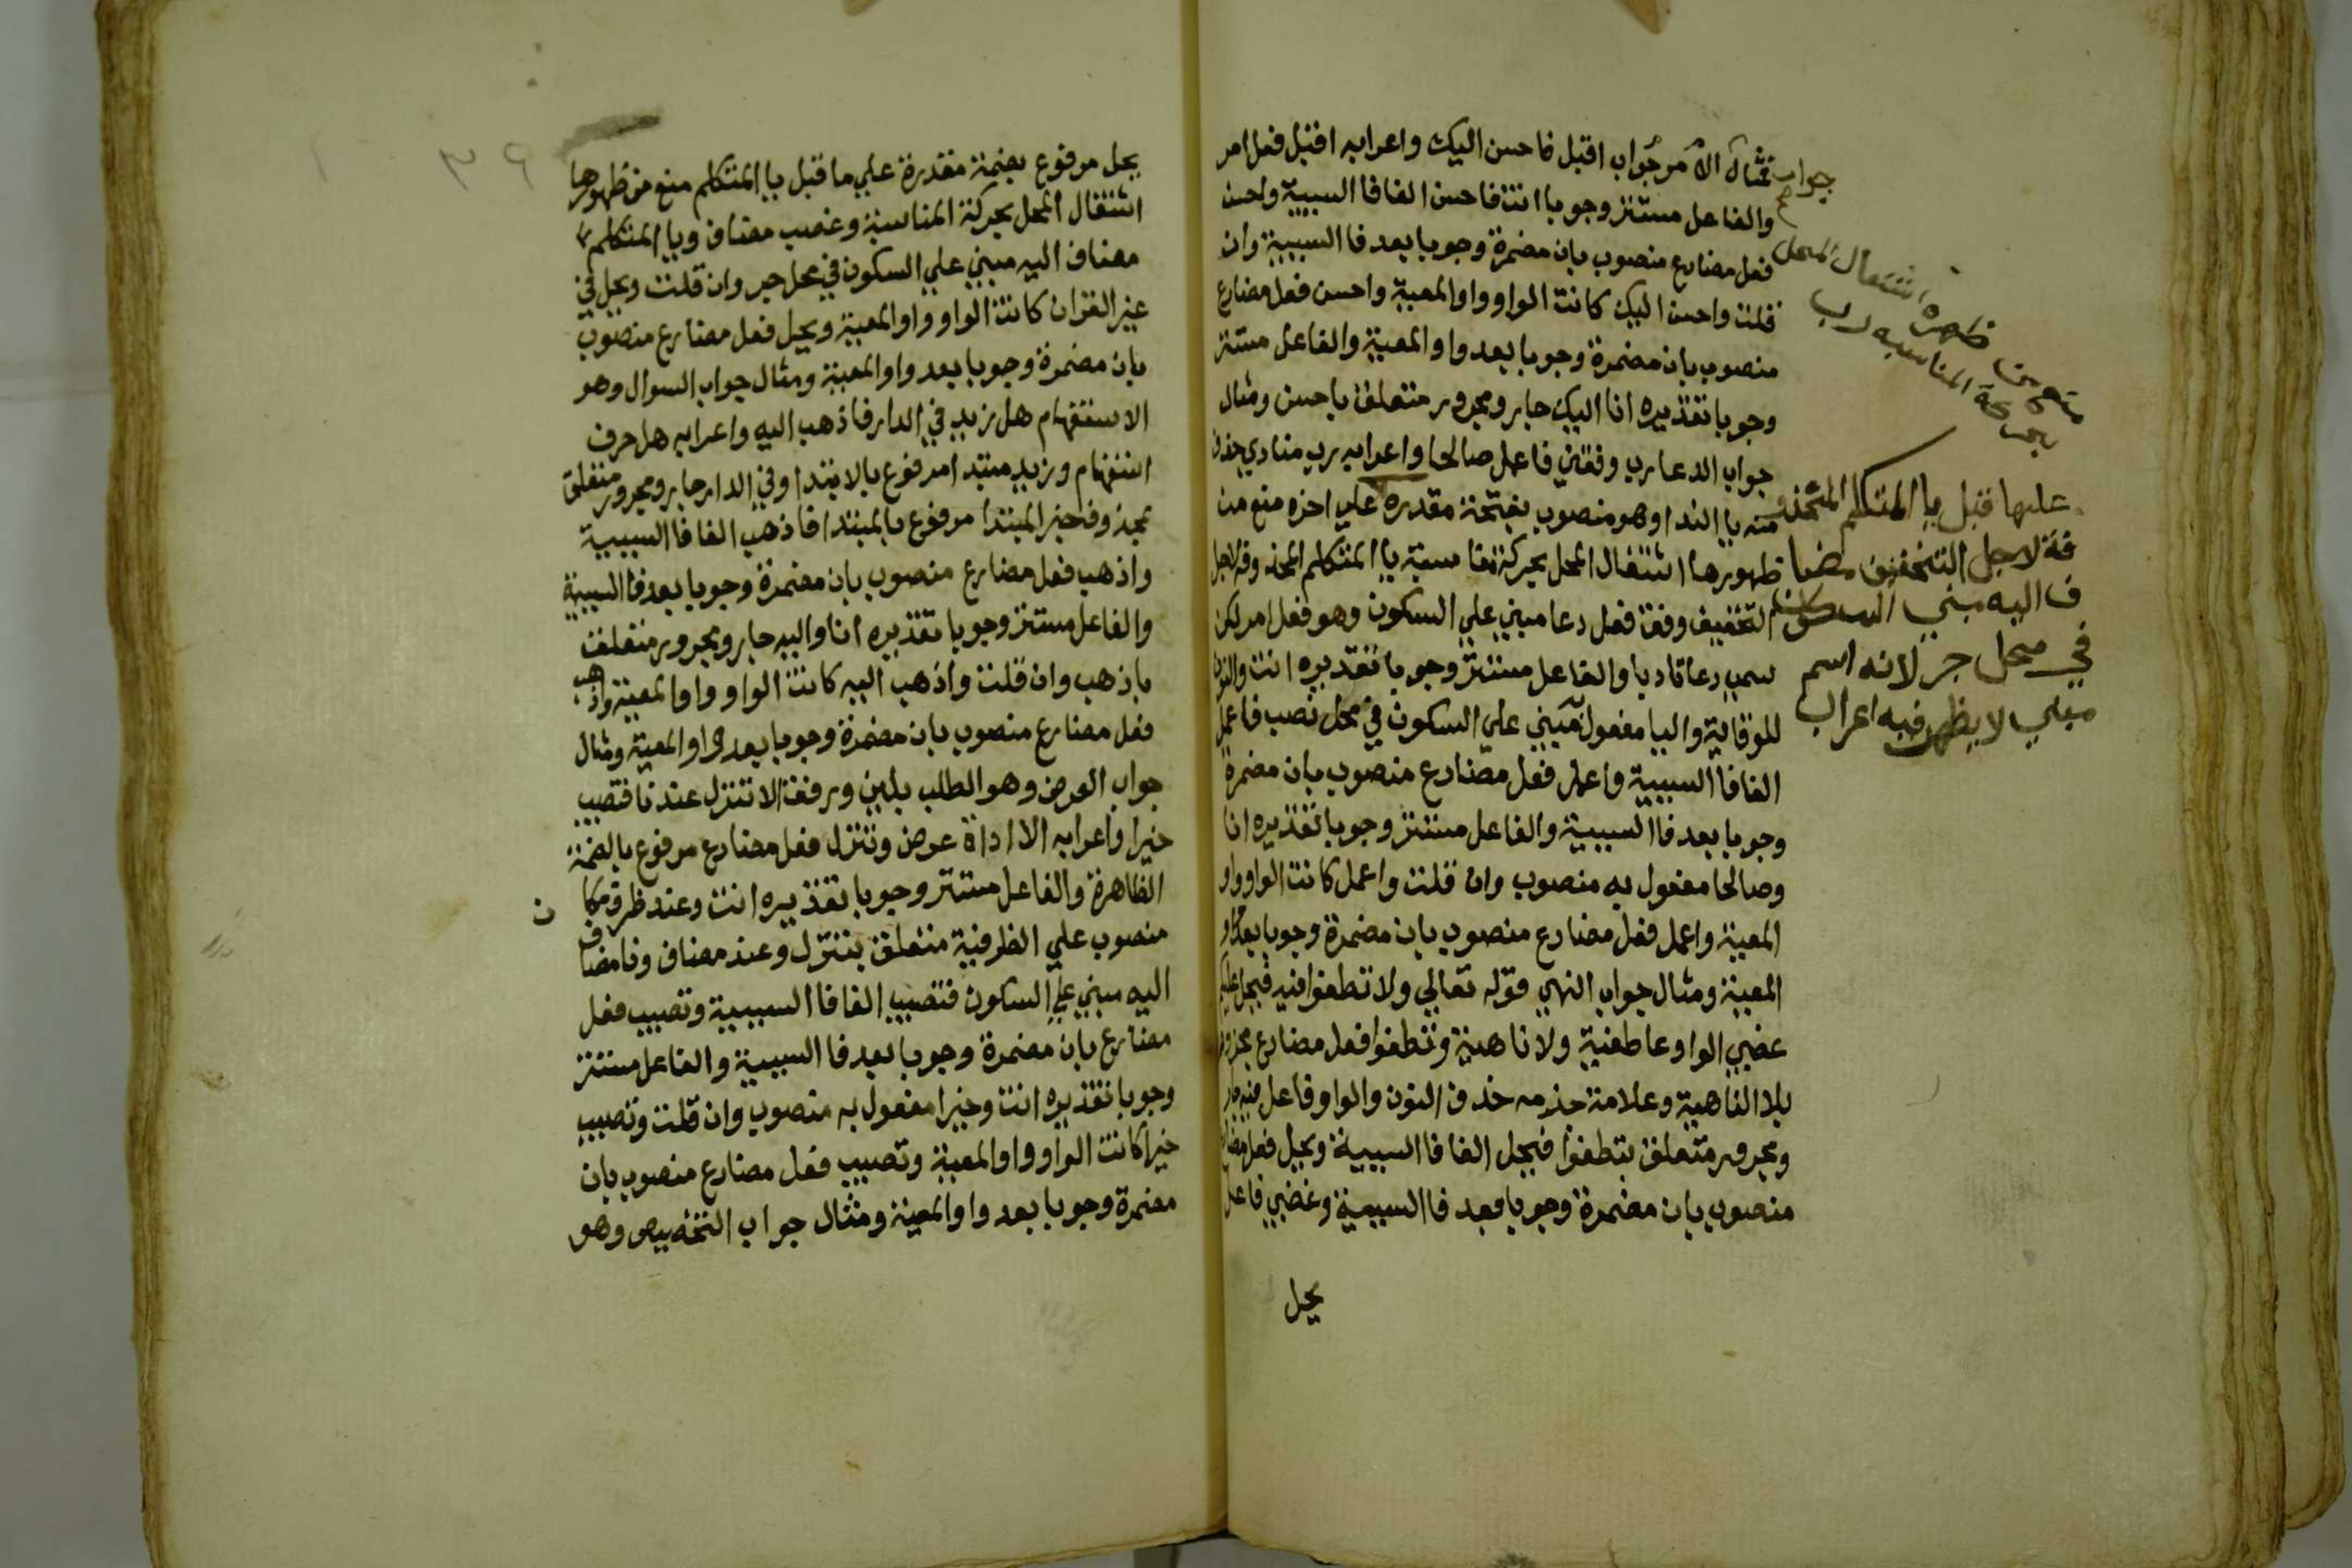 فمثال الأمر جواب اقبل فاحسن اليك واعرابه اقبل فعل امر
والفاعل مستتر وجوبا انت فاحسن الفا فا السببية واحسن
فعل مضارع منصوب بان مضمرة وجوبا بعد فا السببية وان
قلت واحسن اليك كانت الواو واو المعية واحسن فعل مضارع
منصوب بان مضمرة وجوبا بعد واو المعية والفاعل مستتر
وجوبا تقديره انا اليك جار ومجرور متعلق باحسن ومثال
جواب الدعا رب وفقني فاعمل صالحا واعرابه رب منادي بحذف
منه يا الندا وهو منصوب بفتحة مقدرة علي اخره منع من
ظهورها اشتغال المحل بحركة مناسبة يا المتكلم المحذوفة لاجل
التخفيف وفق فعل دعا مبني علي السكون وهو فعل امر لكن
سمي دعا تادبا والفاعل مستتر وجوبا تقديره انت والنون
للوقاية واليا مفعول مبني علي السكون في محل نصب فاعمل
الفا فا السببية واعمل فعل مضارع منصوب بان مضمرة
وجوبا بعد فا السببية والفاعل مستتر وجوبا تقديره انا
وصالحا مفعول به منصوب وان قلت واعمل كانت الواو واو
المعية واعمل فعل مضارع منصوب بان مضمرة وجوبا بعد واو
المعية ومثال جواب النهي قوله تعالي ولا تطغوا فيه فيحل عليكم
غضبي الواو عاطفة ولا ناهية وتطغوا فعل مضارع مجزوم
بلا الناهية وعلامة جزمه حذف النون والواو فاعل فيه جار
ومجرور متعلق بتطغوا فيحل الفا فا السببية ويحل فعل مضارع
منصوب بان مضمرة وجوبا بعد فا السببية وغضبي فاعل
يحل
جواب
اشتغال المحل
ظهره
بحركة المناسبه رب
عليها قبل يا المتكلم المحذو
فة لاجل التخفيف مضا
ف اليه مبني السكون
في محل جر لانه اسم
مبني لا يظهر فيه اعراب
٣٩
يحل مرفوع بضمة مقدرة علي ما قبل يا المتكلم منع من ظهورها
اشتغال المحل بحركة المناسبة وغضب مضاف ويا المتكلم
مضاف اليه مبني علي السكون في محل جر وان قلت ويحل في
غير القران كانت الواو واو المعية ويحل فعل مضارع منصوب
بان مضمرة وجوبا بعد واو المعية ومثال جواب السوال وهو
الاستفهام هل زيد في الدار فاذهب اليه واعرابه هل حرف
استفهام وزيد مبتدا مرفوع بالابتدا وفي الدار جار ومجرور متعلق
بمحذوف خبر المبتدا مرفوع بالمبتدا فاذهب الفا فا السببية
واذهب فعل مضارع منصوب بان مضمرة وجوبا بعد فا السببية
والفاعل مستتر وجوبا تقديره انا واليه جار ومجرور متعلق
باذهب وان قلت واذهب اليه كانت الواو واو المعية واذهب
فعل مضارع منصوب بان مضمرة وجوبا بعد واو المعية ومثال
جواب العرض وهو الطلب بلين ورفق الا تنزل عندنا فتصيب
خيرا واعرابه الا اداة عرض وتنزل فعل مضارع مرفوع بالضمة
الظاهرة والفاعل مستتر وجوبا تقديره انت وعند ظرف مكا
ن
منصوب علي الظرفية متعلق بتنزل وعند مضاف ونا مضاف
اليه مبني علي السكون فتصيب الفا فا السببية وتصيب فعل
مضارع بان مضمرة وجوبا بعد فا السببية والفاعل مستتر
وجوبا تقديره انت وخيرا مفعول به منصوب وان قلت وتصيب
خيرا كانت الواو واو المعية وتصيب فعل مضارع منصوب بان
مضمرة وجوبا بعد واو المعية ومثال جواب التخضيض وهو